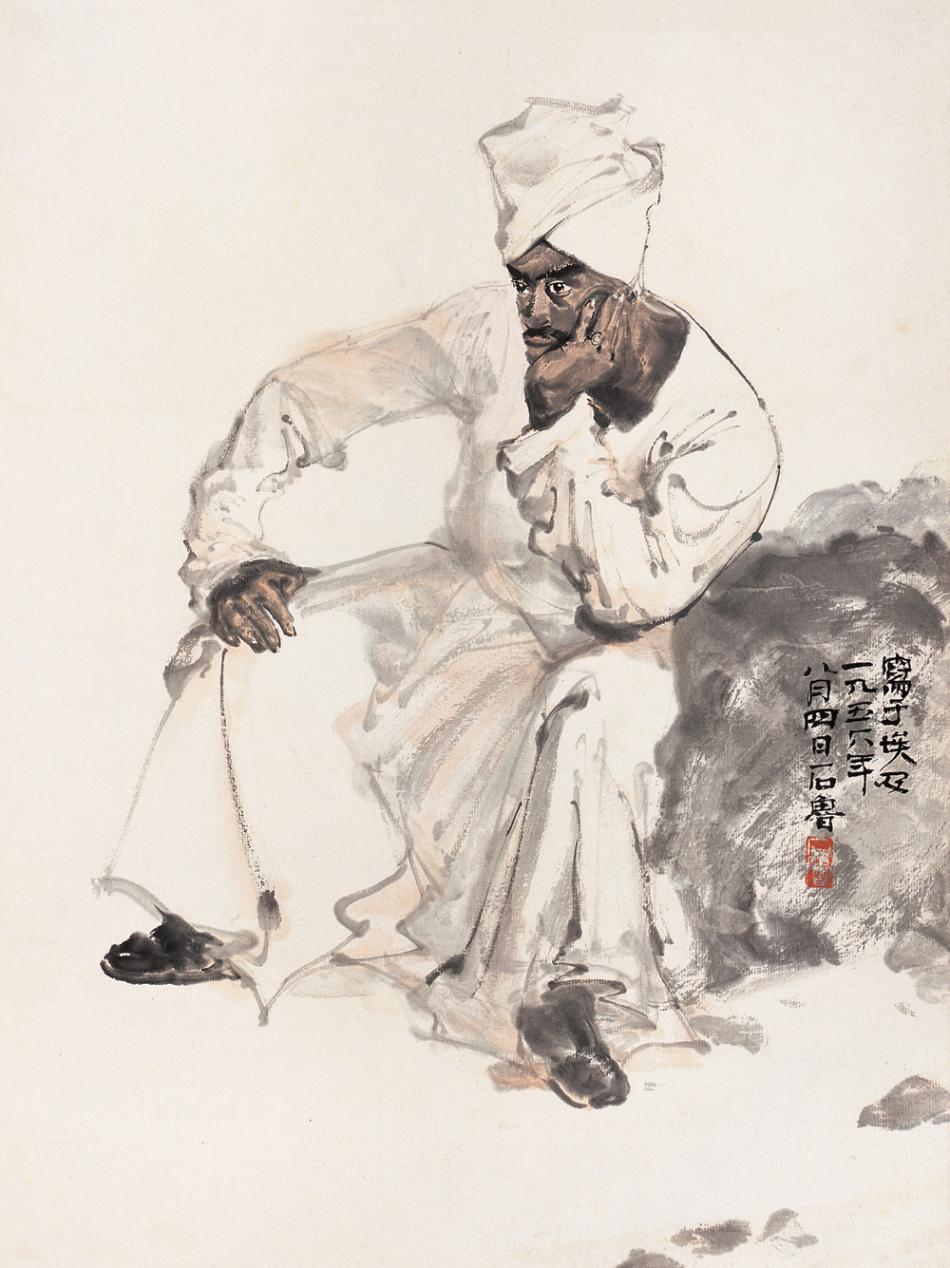 寫于埃及
一九五六年
八月四日石魯